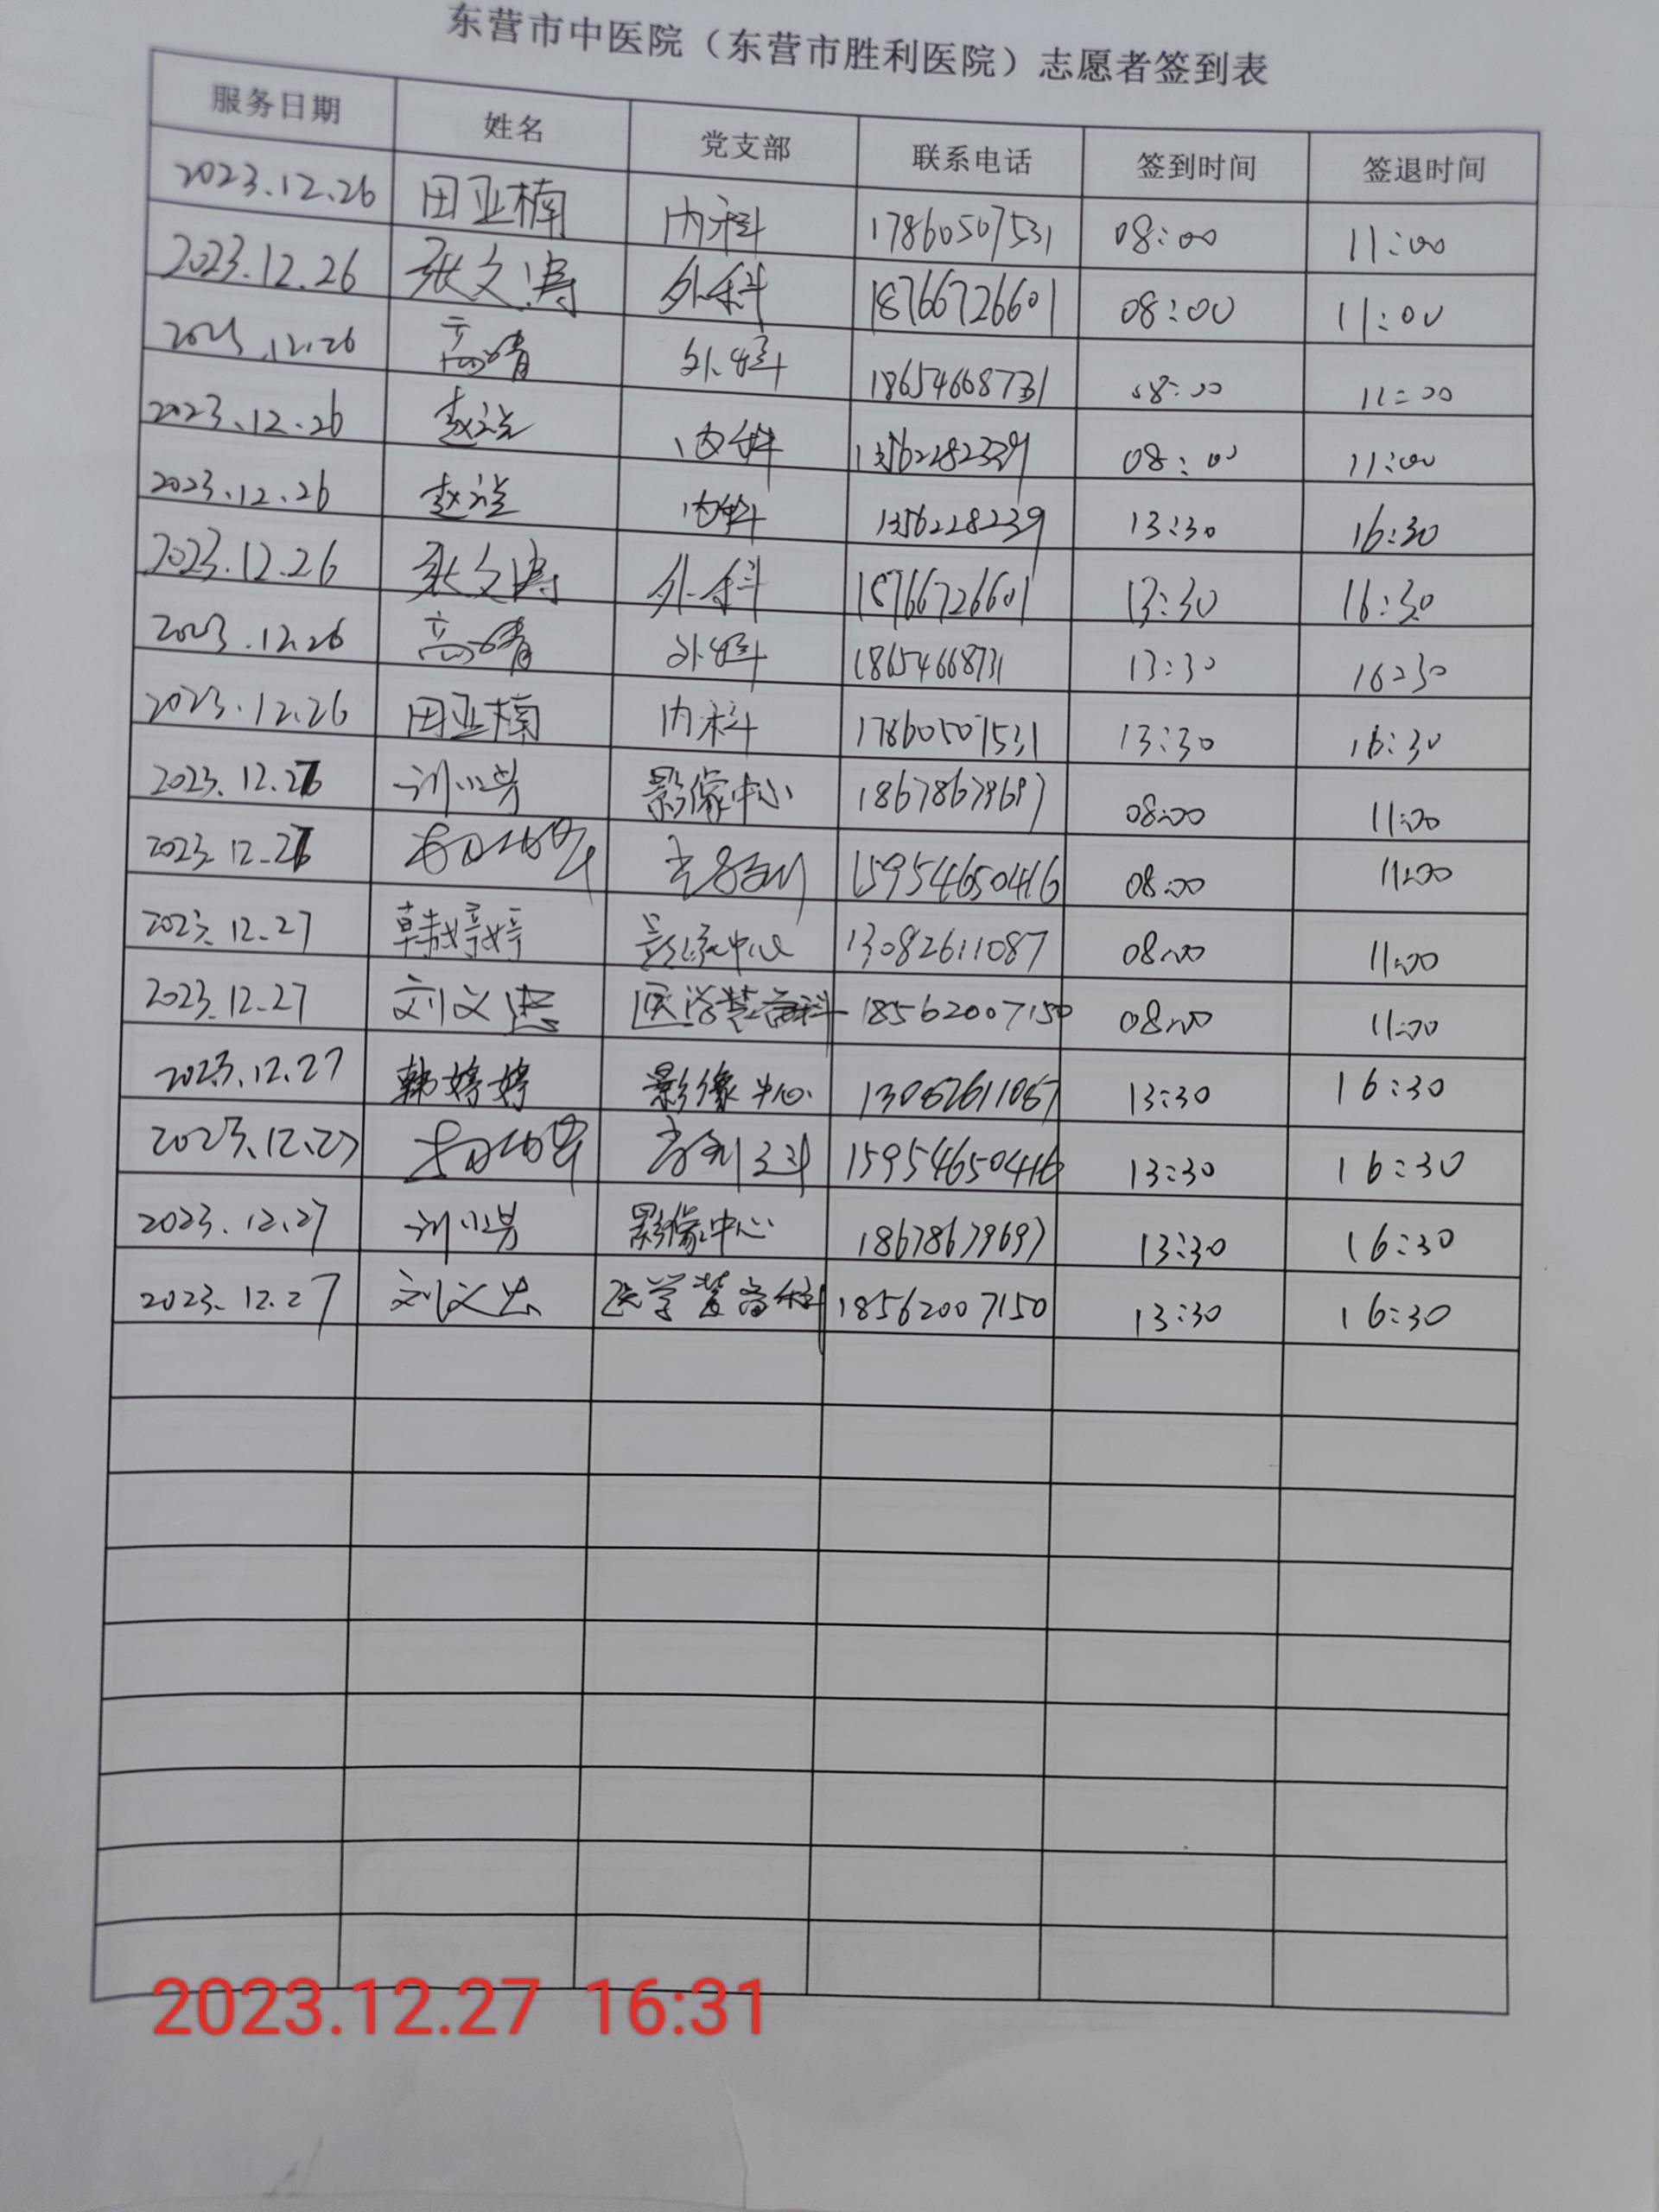 东营市中医院（东营市胜利医院）志愿者签到表
服务日期 姓名 党支部 联系电话 签到时间 签退时间
2023.12.26 田亚楠 内科 17860507531 08:00 11:00
2023.12.26 张文涛 外科 18766726601 08:00 11:00
2023.12.26 高晴 外妇科 18654668731 08:00 11:00
2023.12.26 赵溢 内科 08:00 11:00
2023.12.26 赵溢 内科 13:30 16:30
2023.12.26 张文涛 外科 18766726601 13:30 16:30
2023.12.26 高晴 外妇科 18654668731 13:30 16:30
2023.12.26 田亚楠 内科 17860507531 13:30 16:30
2023.12.27 影像中心 18678679697 08:00 11:00
2023.12.27 15954650416 08:00 11:00
2023.12.27 韩婷婷 影像中心 13082611087 08:00 11:00
2023.12.27 刘文忠 医学装备科 18562007150 08:00 11:00
2023.12.27 韩婷婷 影像中心 13082611087 13:30 16:30
2023.12.27 15954650416 13:30 16:30
2023.12.27 影像中心 18678679697 13:30 16:30
2023.12.27 刘文忠 医学装备科 18562007150 13:30 16:30
2023.12.27 16:31